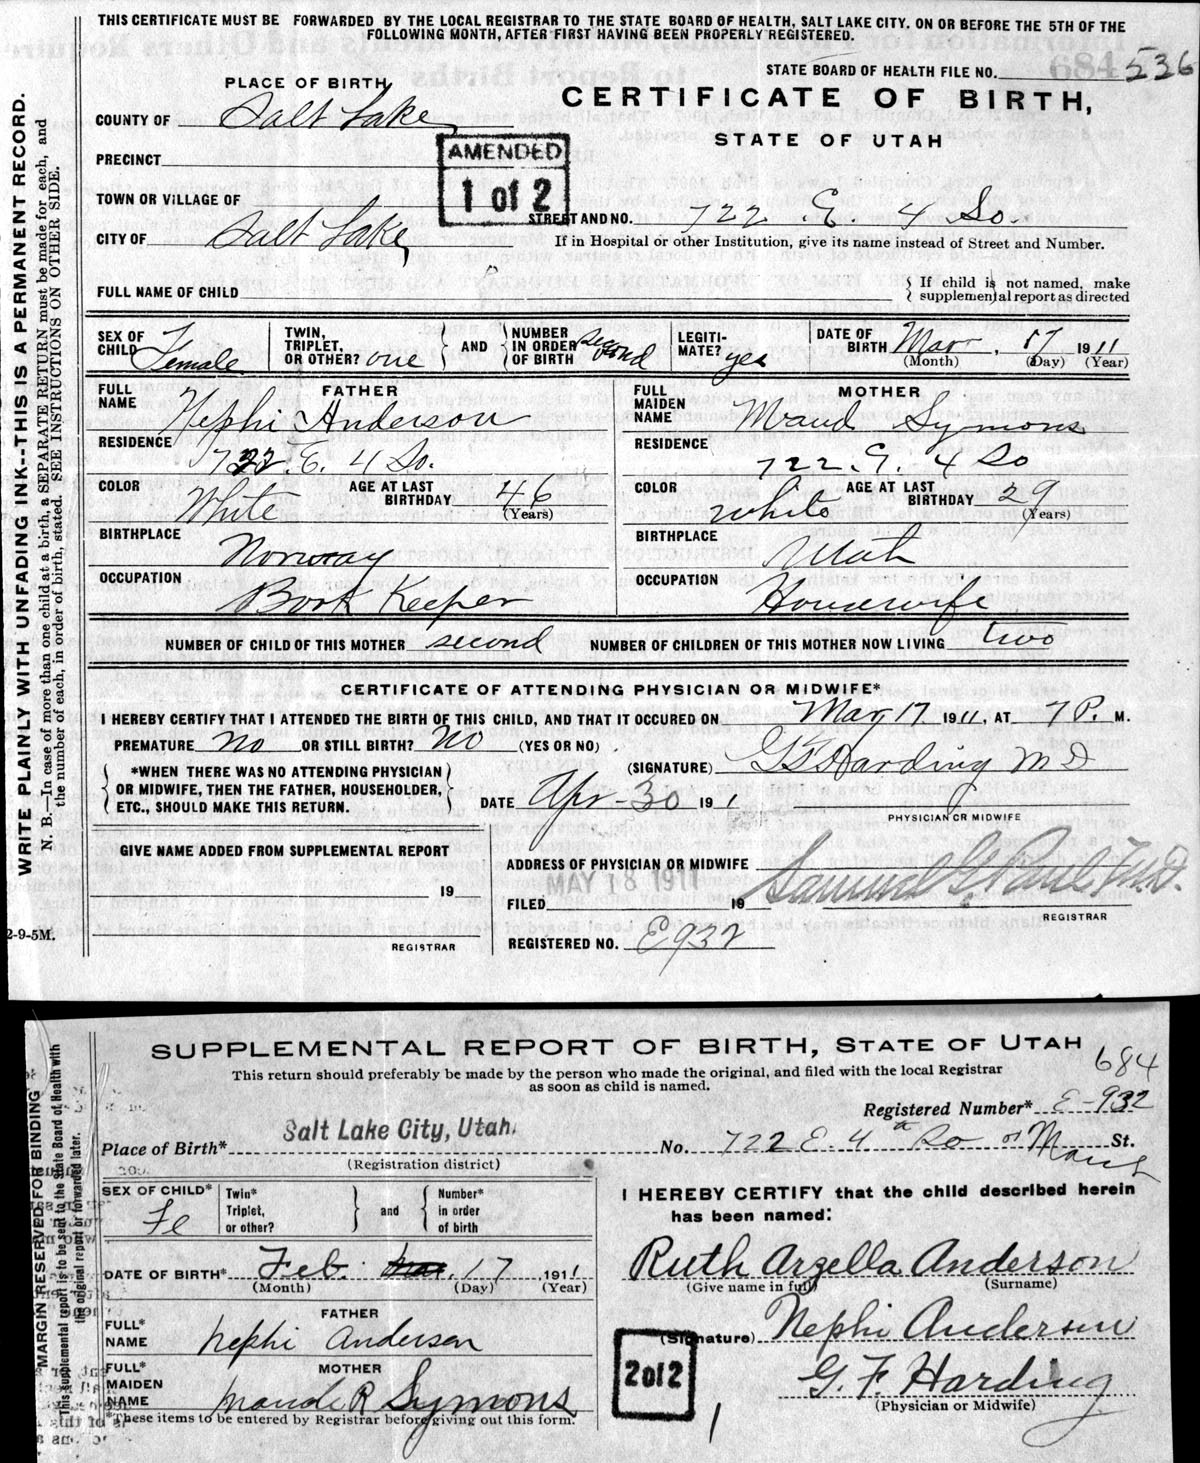 THIS CERTIFICATE MUST BE FORWARDED BY THE LOCAL REGISTRAR TO THE STATE BOARD OF HEALTH, SALT LAKE CITY, ON OR BEFORE THE 5TH OF THE
FOLLOWING MONTH, AFTER FIRST HAVING BEEN PROPERLY REGISTERED.
STATE BOARD OF HEALTH FILE NO. 684 536
PLACE OF BIRTH
CERTIFICATE OF BIRTH,
STATE OF UTAH
COUNTY OF Salt Lake
AMENDED
1 of 2
PRECINCT
TOWN OR VILLAGE OF
STREET AND NO. 722 E. 4 So.
CITY OF Salt Lake
If in Hospital or other Institution, give its name instead of Street and Number.
FULL NAME OF CHILD
If child is not named, make
supplemental report as directed
SEX OF CHILD Female
TWIN, TRIPLET, OR OTHER? one
AND
NUMBER IN ORDER OF BIRTH second
LEGITIMATE? yes
DATE OF BIRTH Mar 17 1911
(Month) (Day) (Year)
FATHER
FULL NAME Nephi Anderson
RESIDENCE 722. E. 4 So.
COLOR White
AGE AT LAST BIRTHDAY 46 (Years)
BIRTHPLACE Norway
OCCUPATION Book Keeper
MOTHER
FULL MAIDEN NAME Maud Symons
RESIDENCE 722. E. 4 So
COLOR White
AGE AT LAST BIRTHDAY 29 (Years)
BIRTHPLACE Utah
OCCUPATION Housewife
NUMBER OF CHILD OF THIS MOTHER second NUMBER OF CHILDREN OF THIS MOTHER NOW LIVING two
CERTIFICATE OF ATTENDING PHYSICIAN OR MIDWIFE*
I HEREBY CERTIFY THAT I ATTENDED THE BIRTH OF THIS CHILD, AND THAT IT OCCURED ON May 17 1911, AT 7 P. M.
PREMATURE No OR STILL BIRTH? No (YES OR NO)
(SIGNATURE) G F Harding M D
*WHEN THERE WAS NO ATTENDING PHYSICIAN
OR MIDWIFE, THEN THE FATHER, HOUSEHOLDER,
ETC., SHOULD MAKE THIS RETURN.
DATE Apr-30 191
PHYSICIAN OR MIDWIFE
GIVE NAME ADDED FROM SUPPLEMENTAL REPORT
19
REGISTRAR
ADDRESS OF PHYSICIAN OR MIDWIFE
MAY 18 1911
FILED 19 Samuel G. Paul, M.D.
REGISTRAR
REGISTERED NO. E932
2-9-5M.
WRITE PLAINLY WITH UNFADING INK--THIS IS A PERMANENT RECORD.
N. B.—In case of more than one child at a birth, a SEPARATE RETURN must be made for each, and
the number of each, in order of birth, stated. SEE INSTRUCTIONS ON OTHER SIDE.
SUPPLEMENTAL REPORT OF BIRTH, STATE OF UTAH
684
This return should preferably be made by the person who made the original, and filed with the local Registrar
as soon as child is named.
Registered Number* E-932
Place of Birth* Salt Lake City, Utah. No. 722 E. 4th So St.
March
(Registration district)
SEX OF CHILD* Fe
Twin* Triplet, or other?
and
Number* in order of birth
DATE OF BIRTH* Feb. Mar. 17 1911
(Month) (Day) (Year)
FATHER
FULL* NAME Nephi Anderson
MOTHER
FULL* MAIDEN NAME Maude R Symons
*These items to be entered by Registrar before giving out this form.
I HEREBY CERTIFY that the child described herein
has been named:
Ruth Arzella Anderson
(Give name in full) (Surname)
(Signature) Nephi Anderson
2 of 2
G. F. Harding
(Physician or Midwife)
MARGIN RESERVED FOR BINDING
This supplemental report is to be sent to the State Board of Health with
the original report or forwarded later.